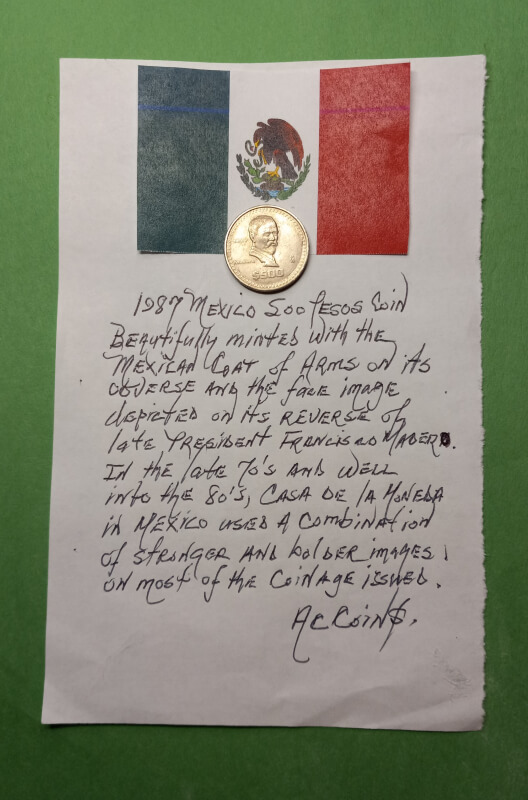 $500
1987 MEXICO 500 PESOS COIN
BEAUTIFULLY MINTED WITH THE
MEXICAN COAT OF ARMS ON ITS
OBVERSE AND THE FACE IMAGE
DEPICTED ON ITS REVERSE OF
LATE PRESIDENT FRANCISCO MADERO.
IN THE LATE 70'S AND WELL
INTO THE 80'S, CASA DE LA MONEDA
IN MEXICO USED A COMBINATION
OF STRONGER AND BOLDER IMAGES
ON MOST OF THE COINAGE ISSUED.
ACCOIN$.